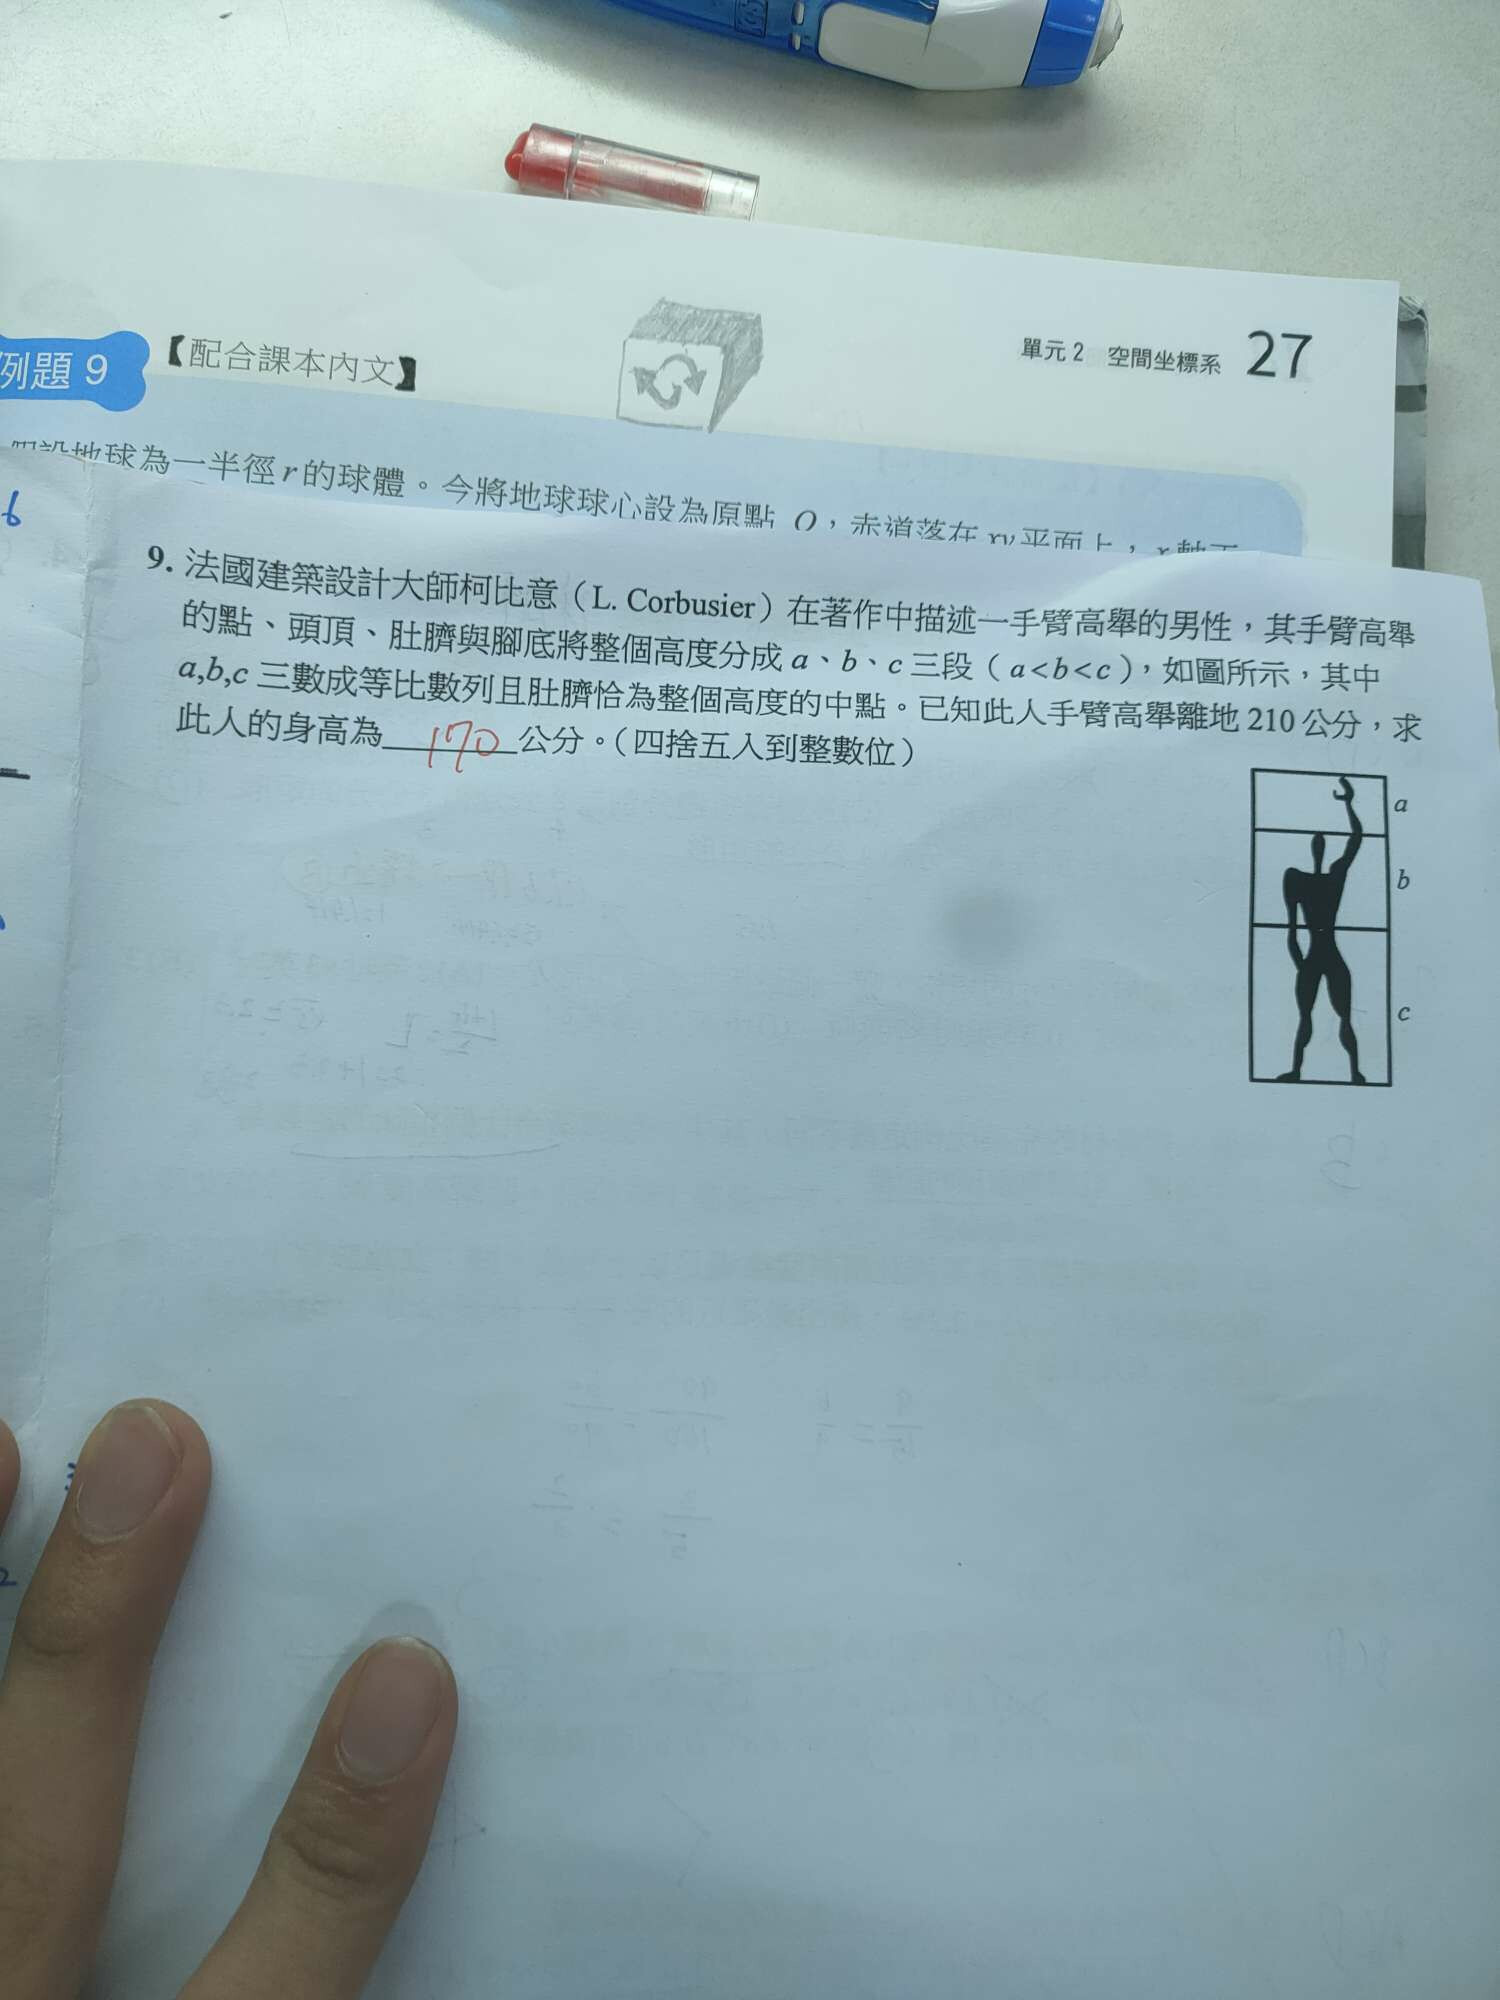 單元2 空間坐標系 27
例題 9 【配合課本內文】
地球為一半徑 r 的球體。今將地球球心設為原點 O，赤道落在 xy 平面上，x 軸正
6
9. 法國建築設計大師柯比意（L. Corbusier）在著作中描述一手臂高舉的男性，其手臂高舉
的點、頭頂、肚臍與腳底將整個高度分成 a、b、c 三段（a<b<c），如圖所示，其中
a,b,c 三數成等比數列且肚臍恰為整個高度的中點。已知此人手臂高舉離地 210 公分，求
此人的身高為 170 公分。（四捨五入到整數位）
a
b
c
2